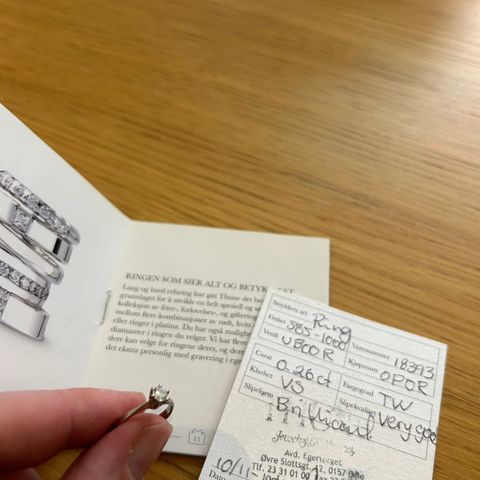 RINGEN SOM SIER ALT OG BETYR
Lang og bred erfaring har gitt Thune det
grunnlaget for å utvikle en helt spesiell og
kolleksjon av frier-, forlovelses-, og giftering
mellom flere kombinasjoner av rødt, hvitt
eller ringer i platina. Du har også mulighet
diamanter i ringen du velger. Vi har flere
dere kan velge for ringene deres, og dere
det ekstra personlig med gravering i eget
11
Smykkets art Ring
Finhet 585-1000 Varenummer 183913
Verdi Kjøpsnum OPOR
Carat 0.26ct Fargegrad TW
Klarhet VS Slipekvalitet Very
Slipeform Brilliant
Avd. Egertorget
Øvre Slottsgt. 12, 0157
Tlf. 23 31 01 00
Dato 10/11-